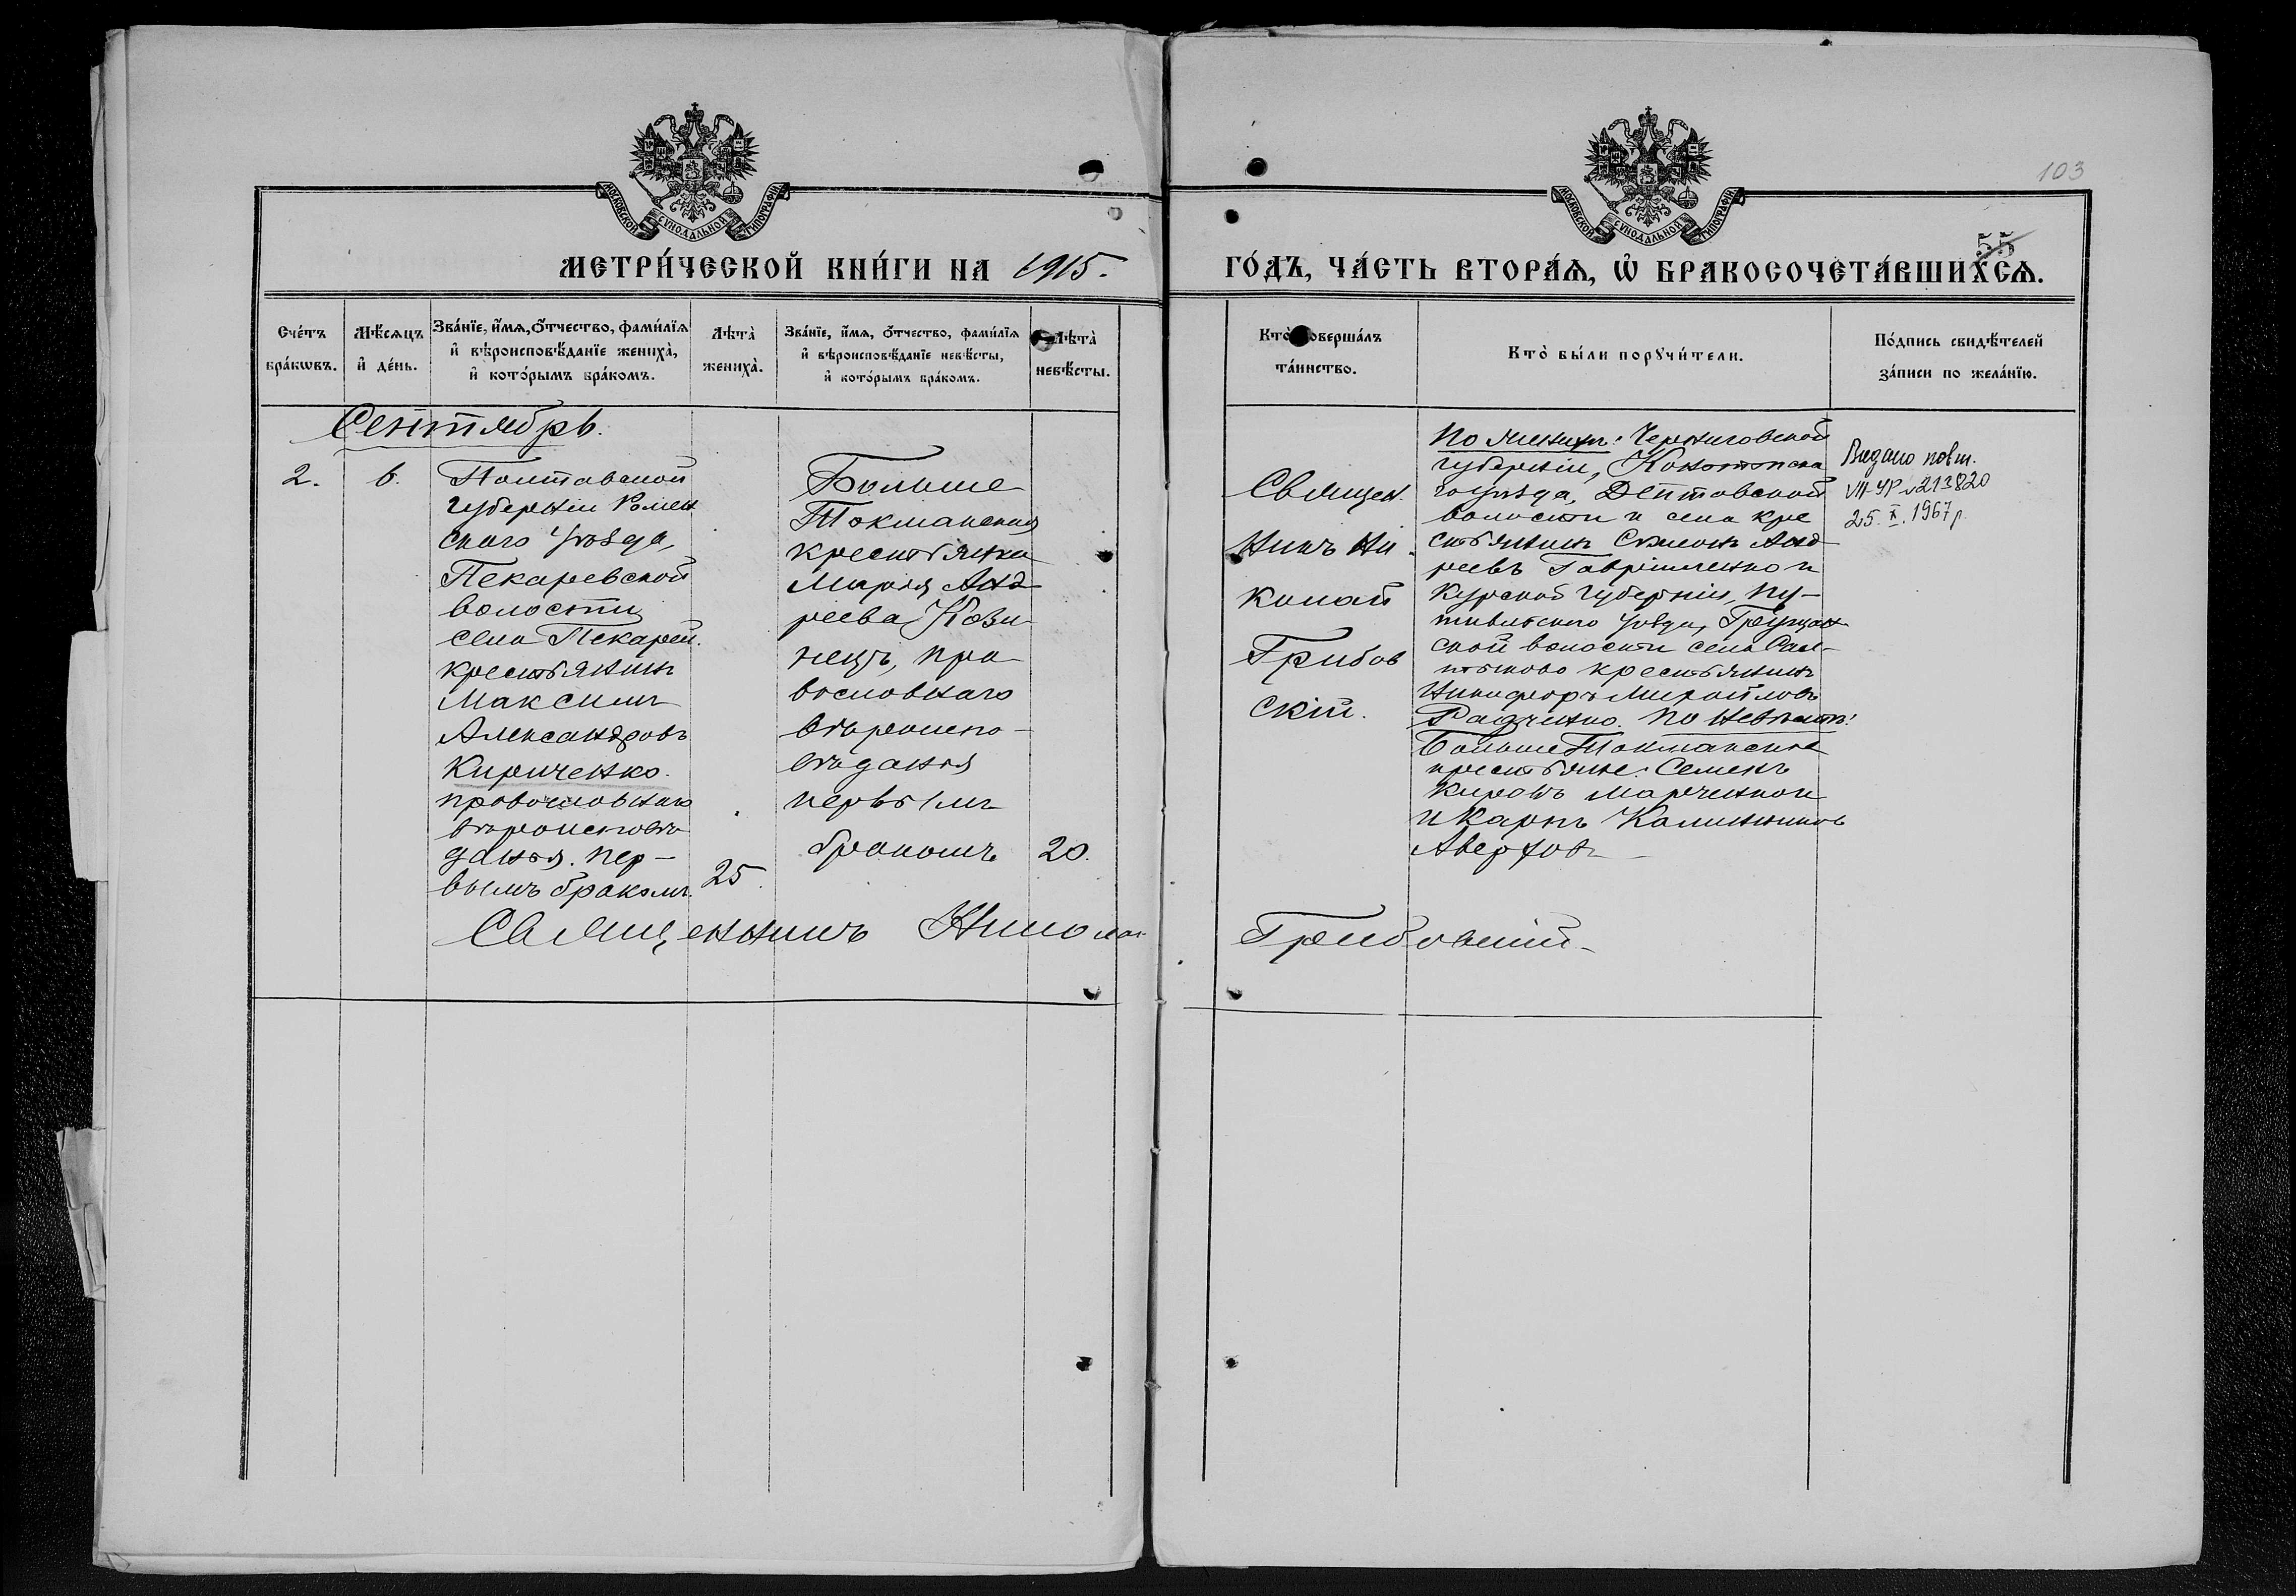 103
55
МОСКОВСКОЙ СѴНОДАЛЬНОЙ ТИПОГРАФІИ
МОСКОВСКОЙ СѴНОДАЛЬНОЙ ТИПОГРАФІИ
МЕТРИ́ЧЕСКОЙ КНИ́ГИ НА 1915.
ГО́ДЪ, ЧА́СТЬ ВТОРА́Ѧ, Ѡ҆ БРАКОСОЧЕТА́ВШИХСѦ.
Сче́тъ
бра́кѡвъ.
Мѣ́сѧцъ
и҆ де́нь.
Зва́нїе, и҆́мѧ, ѻ҆́тчество, фами́лїѧ
и҆ вѣроисповѣ́данїе жениха̀,
и҆ кото́рымъ бра́комъ.
Лѣта̀
жениха̀.
Зва́нїе, и҆́мѧ, ѻ҆́тчество, фами́лїѧ
и҆ вѣроисповѣ́данїе невѣ́сты,
и҆ кото́рымъ бра́комъ.
Лѣта̀
невѣ́сты.
Кто̀ соверша́лъ
та́инство.
Кто̀ бы́ли порꙋчи́тели.
По́дпись свидѣ́телей
за́писи по жела́нїю.
Сентябрь.
2.
6.
Полтавской
губерніи Ромен
скаго уѣзда,
Пекаревской
волости
села Пекарей.
крестьянинъ
Максимъ
Александровъ
Кириченко.
православнаго
вѣроисповѣ
данія. пер-
вымъ бракомъ.
25.
Больше
Токмакская
крестьянка
Марія Анд
реева Кови
нецъ, пра
вославнаго
вѣроиспо-
вѣданія
первымъ
бракомъ
20.
Священ.
никъ Ни
колай
Грибов
скій.
По жениху: Черниговской
губерніи, Конотопска
го уѣзда, Дептовской
волости и села кре
стьянинъ Симеонъ Анд
реевъ Гавришенко и
Курской губерніи, Пу-
тивльского уѣзда, Грузчан
ской волости села
крестьянинъ
Никифоръ Михайловъ
Радченко. По невѣстѣ:
Больше Токмакские
крестьяне: Семенъ
Кировъ Марченко
и Карпъ Калинниковъ
Аверховъ
Видано повт.
VII-УР №213820
25.X.1967 р.
Священникъ Николай Грибовскій